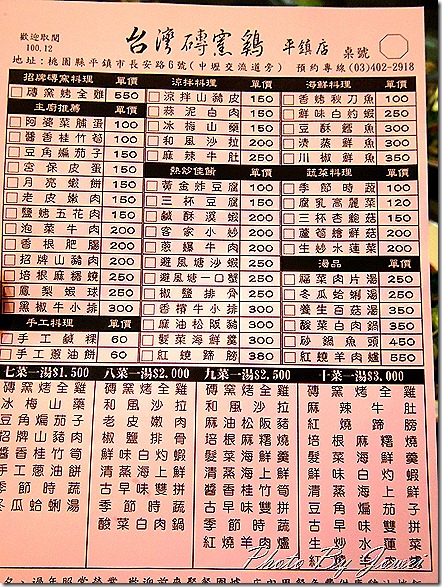 歡迎取閱
100.12
台灣磚窯鷄 平鎮店 桌號
地址:桃園縣平鎮市長安路6號(中壢交流道旁) 預約專線(03)402-2918
招牌磚窯料理 單價
磚窯烤全雞 550
主廚推薦 單價
阿婆菜脯蛋 100
醬香桂竹筍 100
豆角煸茄子 150
宮保皮蛋 150
月亮蝦餅 150
老皮嫩肉 150
鹽烤五花肉 150
泡菜牛肉 200
香根肥腸 200
招牌山豬肉 200
培根麻糬燒 250
鳳梨蝦球 250
黑椒牛小排 300
手工料理 單價
手工鹹粿 60
手工蔥油餅 60
涼拌料理 單價
涼拌山豬皮 150
蒜泥白肉 150
冰梅山藥 150
和風沙拉 200
麻辣牛肚 250
熱炒佳餚 單價
黃金炸豆腐 100
三杯豆腐 150
鹹酥溪蝦 200
客家小炒 200
蔥爆牛肉 200
避風塘沙蝦 250
避風塘一口蟹 250
椒鹽排骨 250
香椿牛小排 300
麻油松阪豬 300
髮菜海鮮羹 300
紅燒蹄膀 380
海鮮料理 單價
香烤秋刀魚 100
鮮味白灼蝦 250
豆酥鱈魚 300
清蒸鮮魚 300
川椒鮮魚 350
蔬菜料理 單價
季節時蔬 100
腐乳高麗菜 120
三杯杏鮑菇 150
蘆筍燴鮮菇 200
生炒水蓮菜 200
湯品 單價
福菜肉片湯 250
冬瓜蛤蜊湯 250
養生百菇湯 350
酸菜白肉鍋 350
砂鍋魚頭 450
紅燒羊肉爐 550
七菜一湯$1.500
磚窯烤全雞
冰梅山藥
豆角煸茄子
招牌山豬肉
醬香桂竹筍
手工蔥油餅
季節時蔬
冬瓜蛤蜊湯
八菜一湯$2.000
磚窯烤全雞
和風沙拉
老皮嫩肉
椒鹽排骨
鮮味白灼蝦
清蒸海上鮮
古早味雙拼
季節時蔬
酸菜白肉鍋
九菜一湯$2.500
磚窯烤全雞
和風沙拉
麻油松阪豬
培根麻糬燒
髮菜海鮮羹
清蒸海上鮮
醬香桂竹筍
古早味雙拼
季節時蔬
紅燒羊肉爐
十菜一湯$3.000
磚窯烤全雞
麻辣牛肚
紅燒蹄膀
培根麻糬燒
髮菜海鮮羹
鮮味白灼蝦
清蒸海上鮮
豆角煸茄子
古早味雙拼
生炒水蓮菜
紅燒羊肉爐
Photo By Jauzi